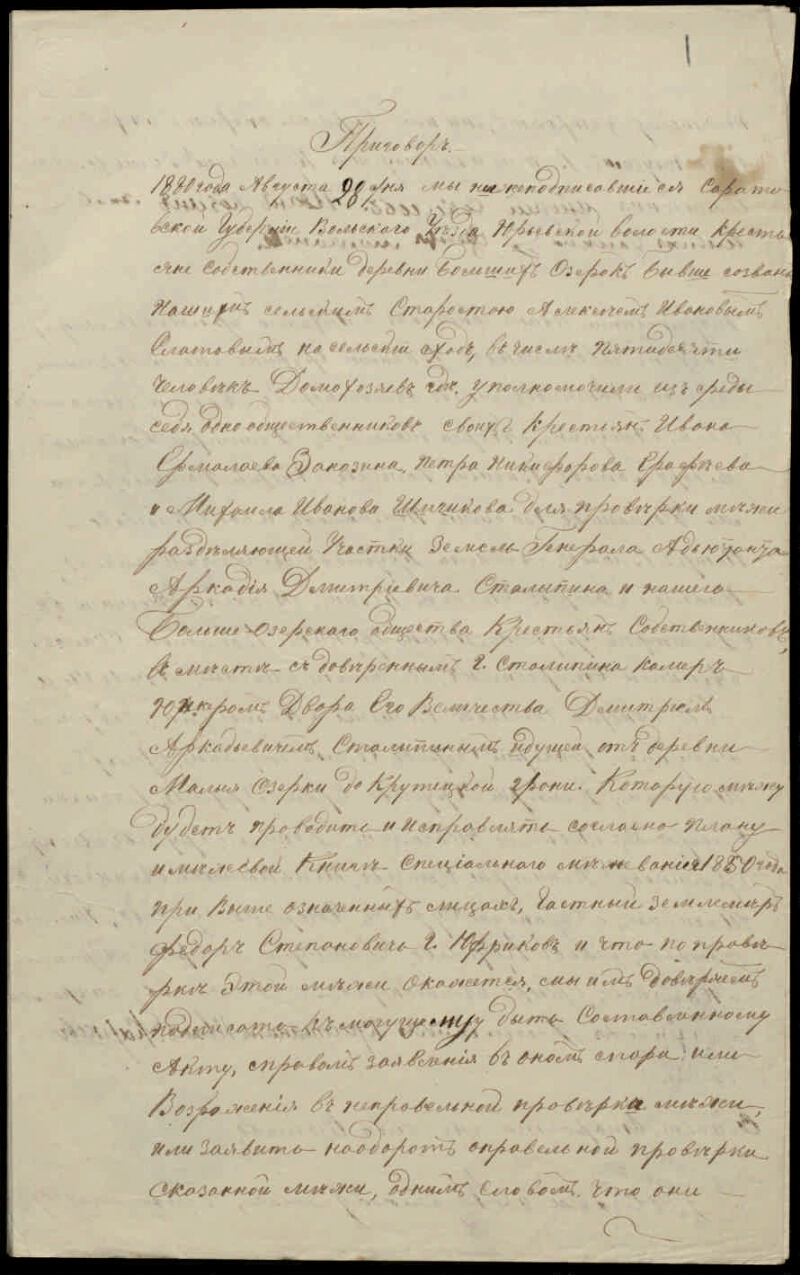 Приговоръ.
1880 года Августа 20 дня мы нижеподписавшиеся Сарато
вской Губерніи Вольскаго Уѣзда Юрьевской волости кресть
яне собственники деревни Большихъ Озерокъ бывше созваны
нашимъ сельскимъ Старостою Ивановымъ
на сельскій сходъ, въ числѣ пятидесяти
человѣкъ Домохозяевъ гдѣ уполномочили изъ среды
себя одно общественниковъ своихъ Крестьян: Ивана
Ермалаева Занозина, Петра Никифорова
и Михаила Иванова для провѣрки мѣжи
раздѣляющей Участки Земель Генерала Адьютанта
Аркадія Дмитріевича Сталыпина и нашего
Больше Озерскаго общества Крестьянъ Собственниковъ,
въ мѣстѣ съ довѣреннымъ Г. Сталыпина камеръ
Юнкромъ Двора Его Величества Дмитріемъ
Аркадьевичемъ Сталыпинымъ идущей отъ деревни
Малыя Озерки до Крутецкой грони. Которую мѣжу
будетъ проводить и исправлять согласно плану
и мѣжевой Книги Спеціальнаго мѣжеванія 1850 года
при Выше означенныхъ лицахъ, Частный Землемѣръ
Федоръ Степановичъ Г. и что по провѣ
ркѣ этой мѣжи окажется, мы имъ довѣряемъ
подписать къ могущему быть Составленному
Акту, справомъ заявленія въ ономъ спора или
Возроженія въ неправельной провѣрки мѣжи,
или заявить наоборотъ оправельной провѣрки
сказанной мѣжи, однимъ словомъ что они